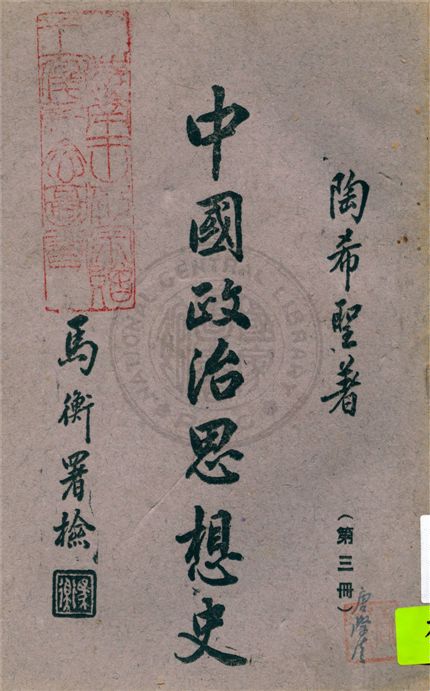 陶希聖著
(第三冊)
中國政治思想史
馬衡署檢
NATIONAL CENTRAL LIBRARY